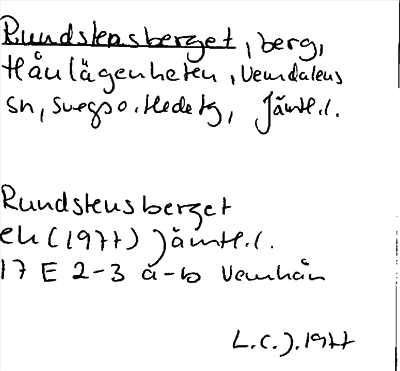 Rundstensberget, berg,
Håulägenheten, Vemdalens
sn, Svegs o. Hede tg, Jämtl.l.
Rundstensberget
ek (1977) Jämtl.l.
17 E 2-3 a-b Vemhån
L.C.J. 1977